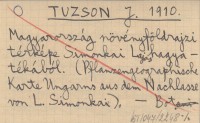 TUZSON J. 1910.
Magyarország növényföldrajzi
térképe Simonkai L. hagya-
tékából. (Pflanzengeographische
Karte Ungarns aus dem Nachlasse
von L. Simonkai), —